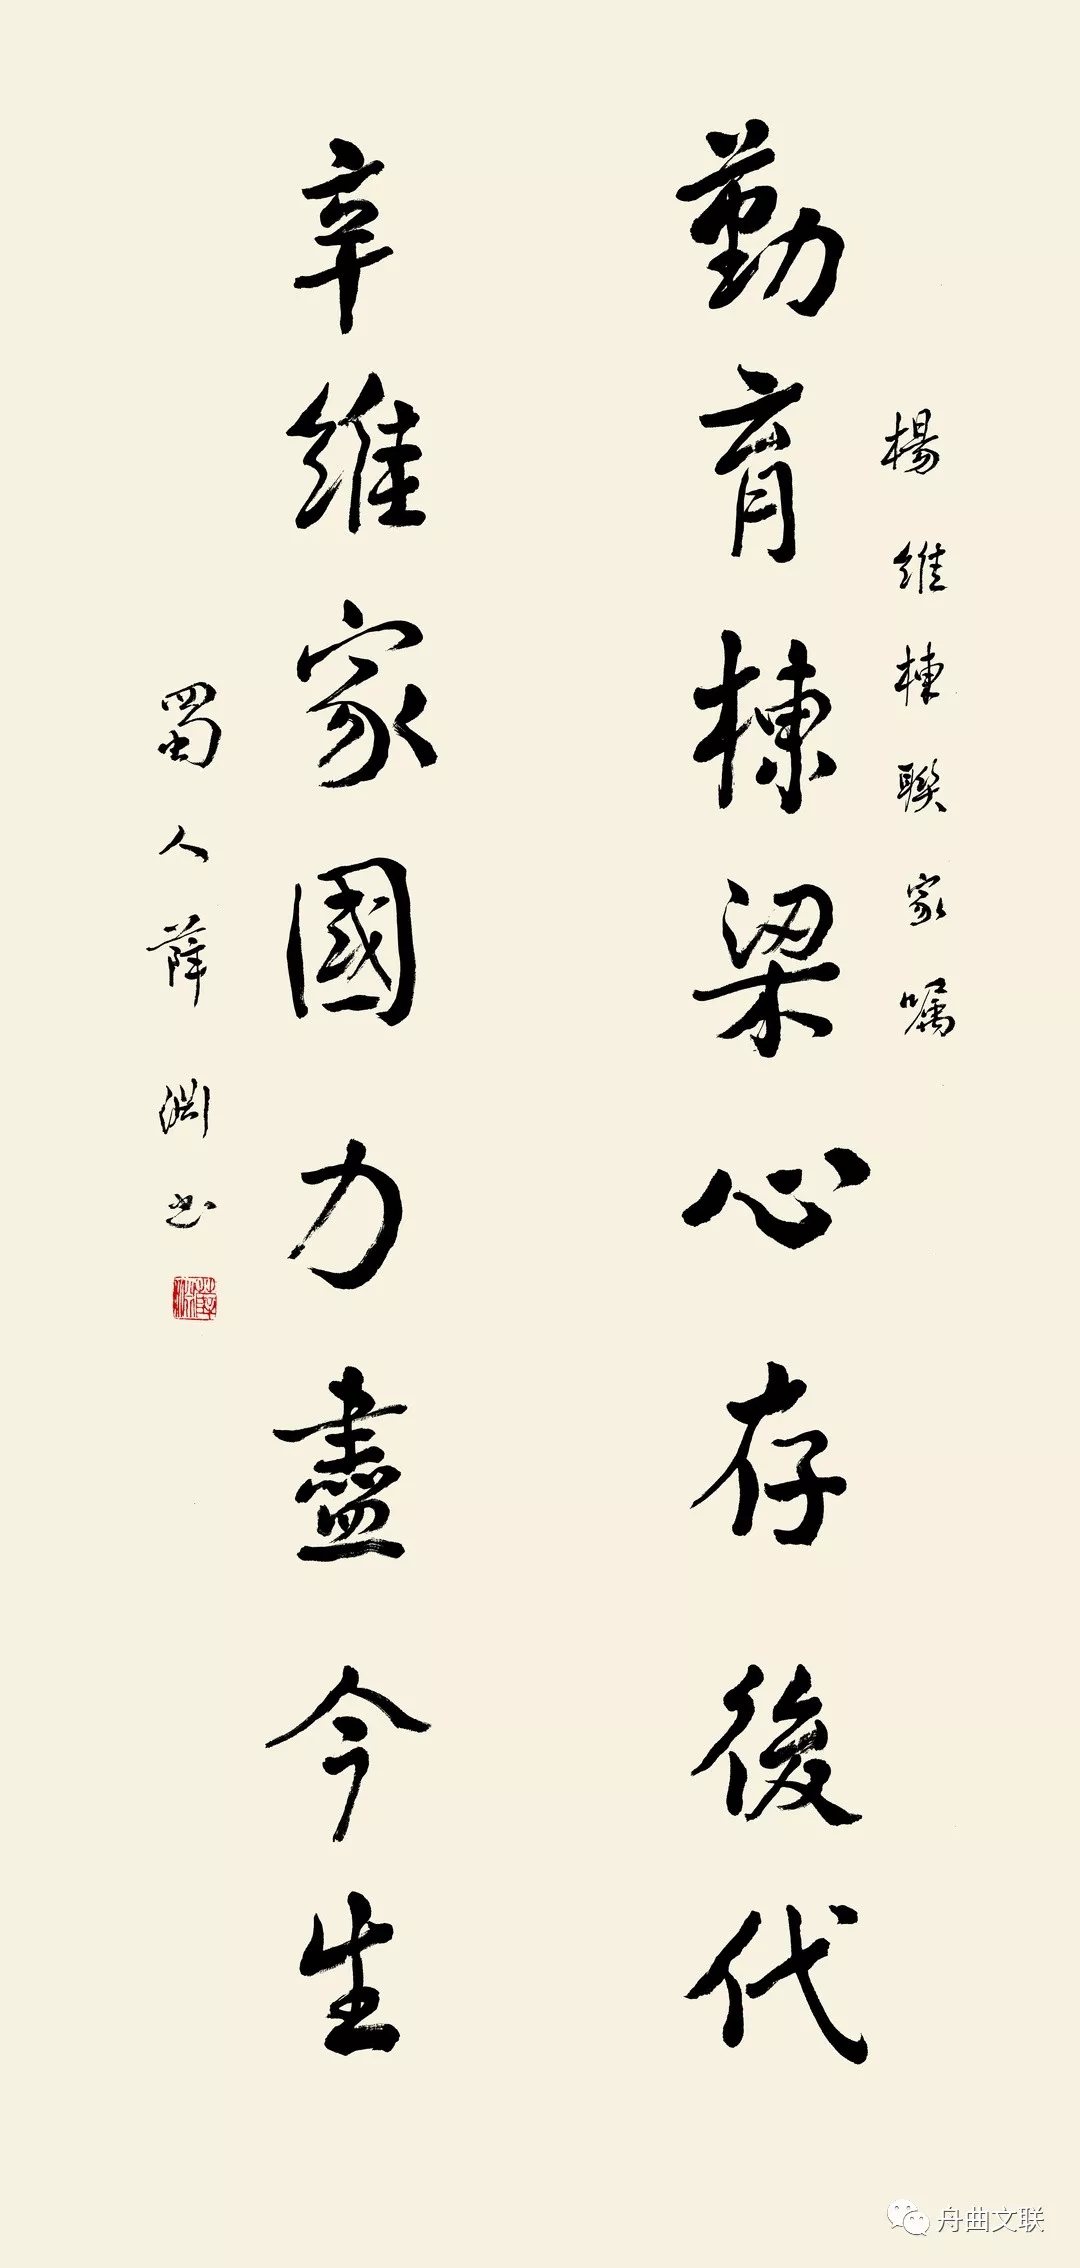 楊維棟聯家嘱
勤育棟梁心存後代
辛維家國力盡今生
蜀人薛渊书
舟曲文联